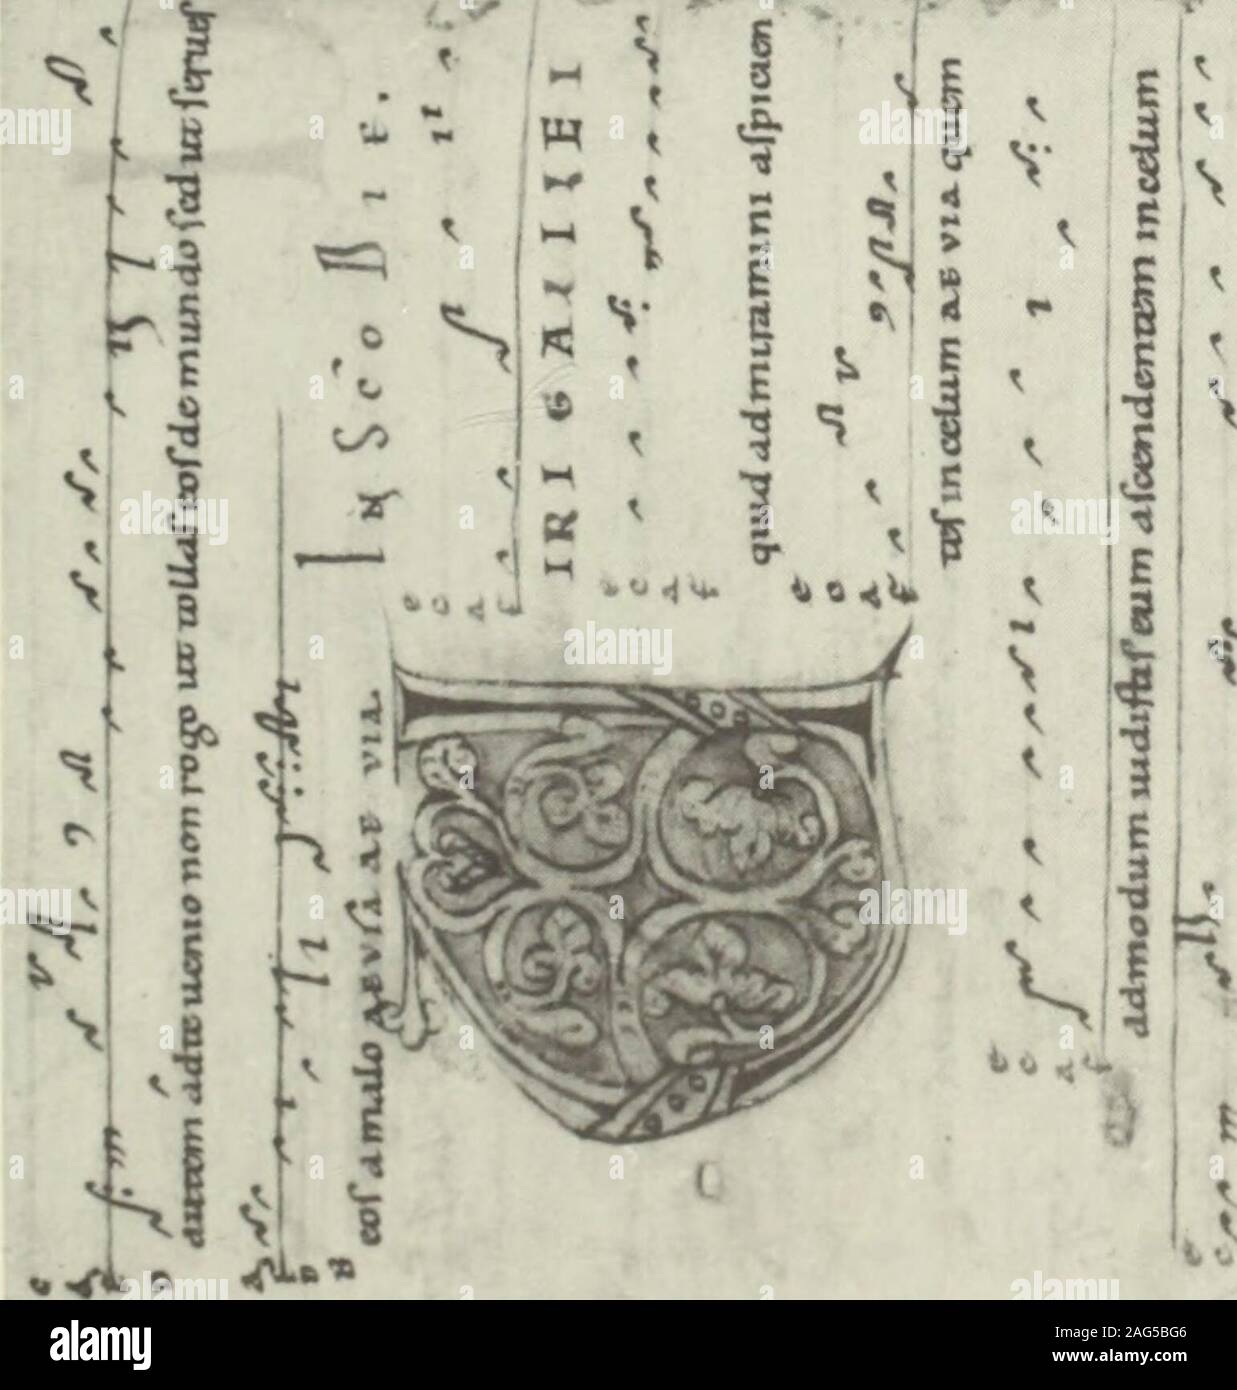 autem ad te uenio non rogo ut tollas eos de mundo sed ut serues
eos a malo AEVIA AE VIA.
IN SCO DIE.
IRI GALILEI
quid admiramini aspicien
tes in celum AE VIA quem
admodum uidistis eum ascendentem in celum
alamy
Image ID: 2AG5BG6
www.alamy.com